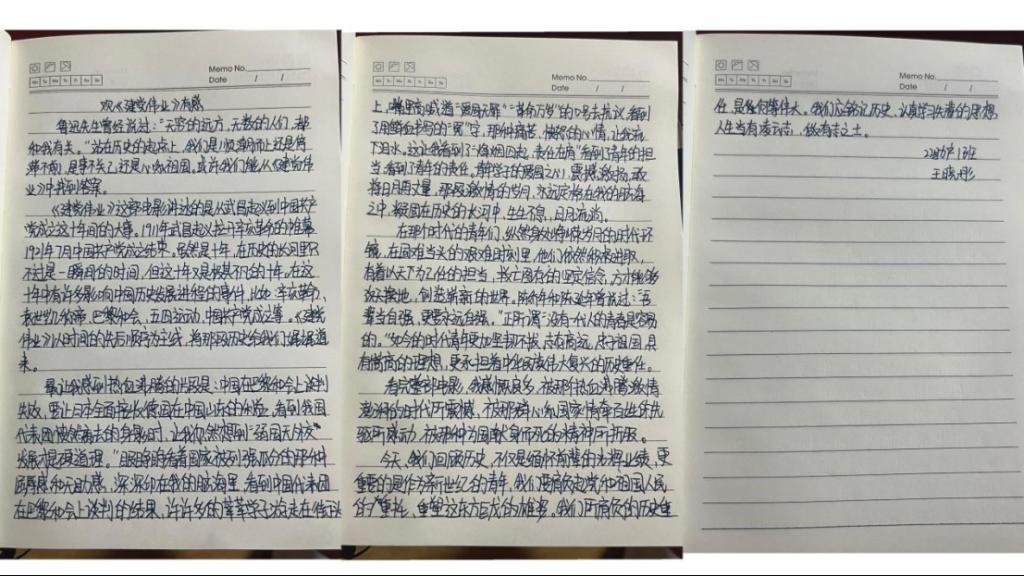 Memo No.
Date / /
Mo Tu We Th Fr Sa Su
观《建党伟业》有感
鲁迅先生曾经说过：“无穷的远方，无数的人们，都
和我有关。”站在历史的起点上，我们是
不前，是事不关己还是心系祖国。或许我们能从《建党伟
业》中找到答案。
《建党伟业》这部电影讲述的是从武昌起义到中国共产
党成立这十年间的大事。1911年武昌起义拉开辛亥革命的帷幕
1921年7月中国共产党成立结束。虽然是十年，在历史的长河里只
不过是一瞬间的时间，但这十年又是极其不凡的十年。在这
十年中有许多影响中国历史发展进程的事件，比如：辛亥革命、
袁世凯称帝、巴黎和会、五四运动、中国共产党成立等。《建党
伟业》以时间的先后顺序为主线，将那段历史给我们娓娓道
来。
最让我感到热血沸腾的片段是：中国在巴黎和会上谈判
失败，要让日本全面接长德国在中国山东的权益。看到我国
代表团愤然离去的身影时，让我依然想到“弱国无外交”
发展才是硬道理。”眼睁睁看着国家被列强瓜分的那种
屈辱感和无助感，深深印在我的脑海里。看到中国代表团
在巴黎和会上谈判的结果，许许多多的莘莘学子游走在街头
Memo No.
Date / /
Mo Tu We Th Fr Sa Su
上，嘴里高喊道“爱国无罪”“青年万岁”的口号去抗议，看到
了用鲜血书写的“冤”字，那种痛苦、愤怒的心情，让我流
下泪水。这让我看到了“烽烟四起，责任在肩”看到了青年的担
当，看到了青年的责任。青年学子的爱国之心，震撼激扬，敢
将日月再丈量，那段激情的岁月，永远定格在我的脑海
之中，凝固在历史的长河中，生生不息，日月流淌。
在那个时代的青年们，纵然身处峥嵘岁月的时代环
境，在国难当头的艰难时刻里，他们依然积极进取，
有着以天下为己任的担当，救亡图存的坚定信念，方才能够
改天换地，创造崭新的世界。陈乔年和陈延年曾说过：“吾
辈当自强，更要永远自强。”正所谓“没有一代人的青春是容易
的。”如今的时代青年更加坚韧不拔，志存高远，忠于祖国，具
有崇高的理想，更承担着中华民族伟大复兴的历史重任。
看完整部电影，我感慨良多，被那个热血沸腾激情
澎湃的时代所震撼，被那群心系国家情牵百姓的先
驱所感动，被那种为国献身而死的精神所折服。
今天，我们回顾历史，不仅是缅怀前辈的光辉业绩，更
重要的是作为新世纪的青年，我们要肩负起党和祖国人民
的重托，重塑这东方巨龙的雄姿。我们所肩负的历史重
Memo No.
Date / /
任，是任何等伟大。我们应铭记历史，认真学执着的思想
人生当有凌云志，做有志之士。
1班
王晓彤